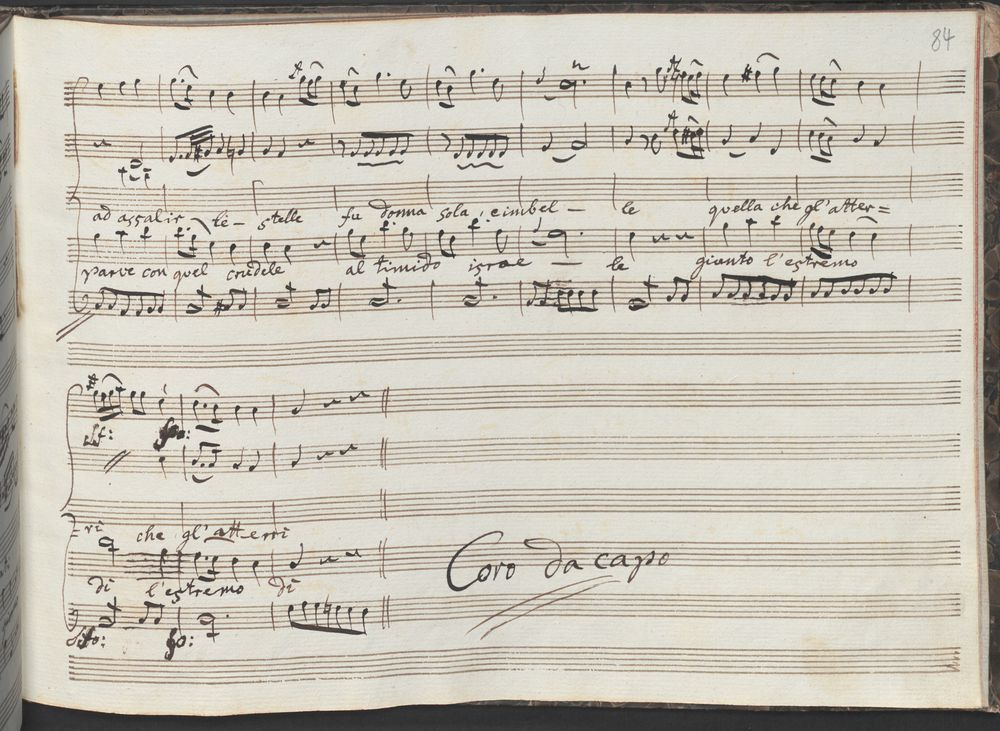 84
ad assalir te - stelle fu donna sola, e imbel - le quella che gl'atter=
parve con quel crudele al timido israe - le giunto l'estremo
sf: fo:
=ri che gl'atterri
di l'estremo di
Coro da capo
fo: